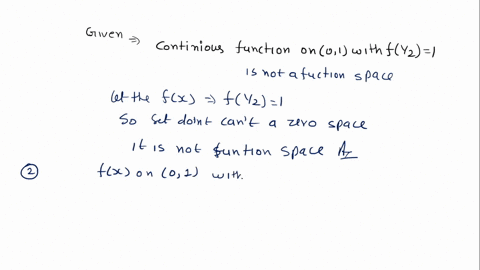 Given ⇒ Continious function on (0,1) with f(Y2)=1
is not a fuction space
let the f(x) ⇒ f(Y2)=1
So set doint can't a zero space
it is not funtion space
② f(x) on (0,1) with